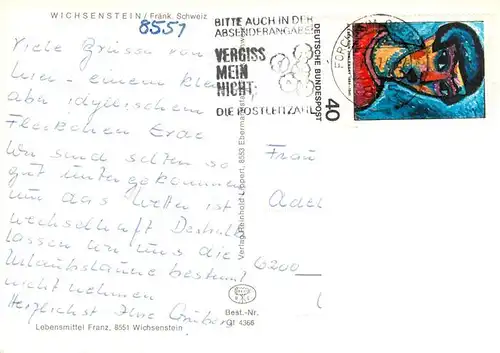 WICHSENSTEIN / Fränk. Schweiz
8551
BITTE AUCH IN DER
ABSENDERANGABE
VERGISS
MEIN
NICHT:
DIE POSTLEITZAHL
DEUTSCHE BUNDESPOST
40
Viele Grüsse von
hier - einem klei
aber idyllischem
Fleckchen Erde
Wir sind selten so
gut untergekommen
nur das Wetter ist
wechselhaft Deshalb
lassen wir uns die
Urlaubslaune bestimmt
nicht nehmen
Herzlichst Ihre
Frau
Adel
6200
Verlag Reinhold Lippert, 8553 Ebermannstadt
Best.-Nr.
Gf 4366
Lebensmittel Franz, 8551 Wichsenstein